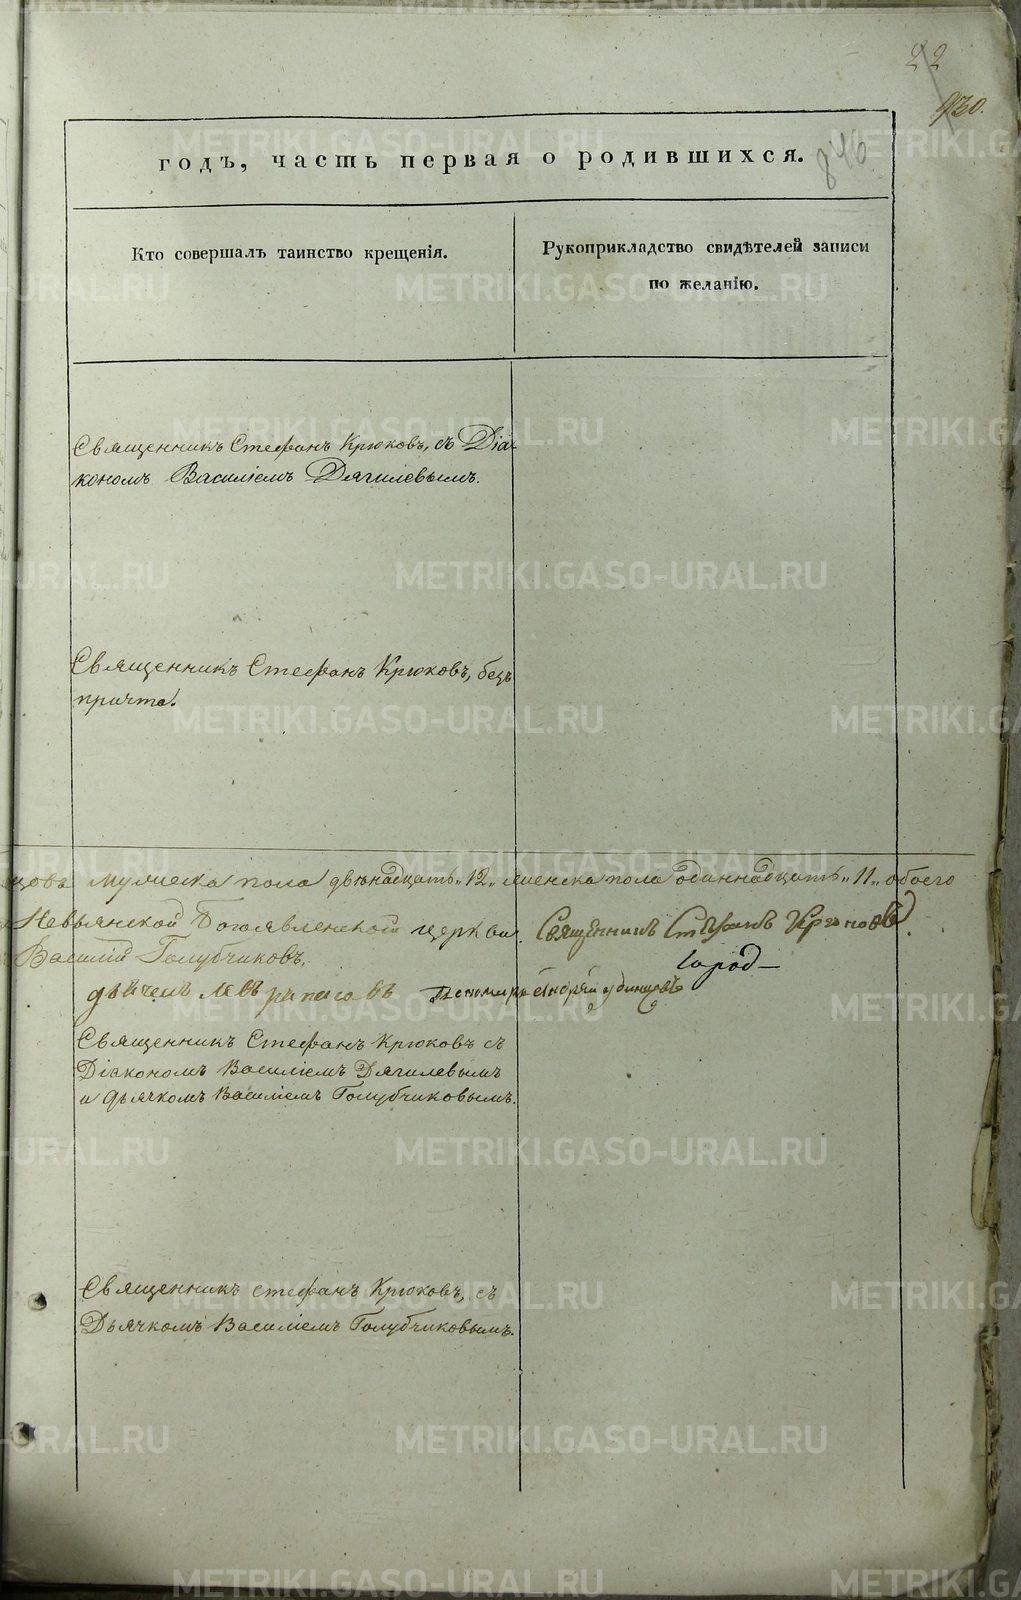 22
930.
846
годъ, часть первая о родившихся.
Кто совершалъ таинство крещенія.
Рукоприкладство свидѣтелей записи
по желанію.
Священникъ Стефанъ Крюковъ, съ Діа-
кономъ Василіемъ Дягилевымъ.
Священникъ Стефанъ Крюковъ, безъ
причта.
мужеска пола двѣнадцать „12„ женска пола одиннадцать „11„ обоего
Невьянской Богоявленской церкви. Священникъ Стефанъ Крюковъ
Василій Голубчиковъ.
Пономарь Андрей Удинцовъ
Священникъ Стефанъ Крюковъ съ
Діакономъ Василіемъ Дягилевымъ
и дьячкомъ Василіемъ Голубчиковымъ.
Священникъ Стефанъ Крюковъ, съ
Дьячкомъ Василіемъ Голубчиковымъ.
METRIKI.GASO-URAL.RU